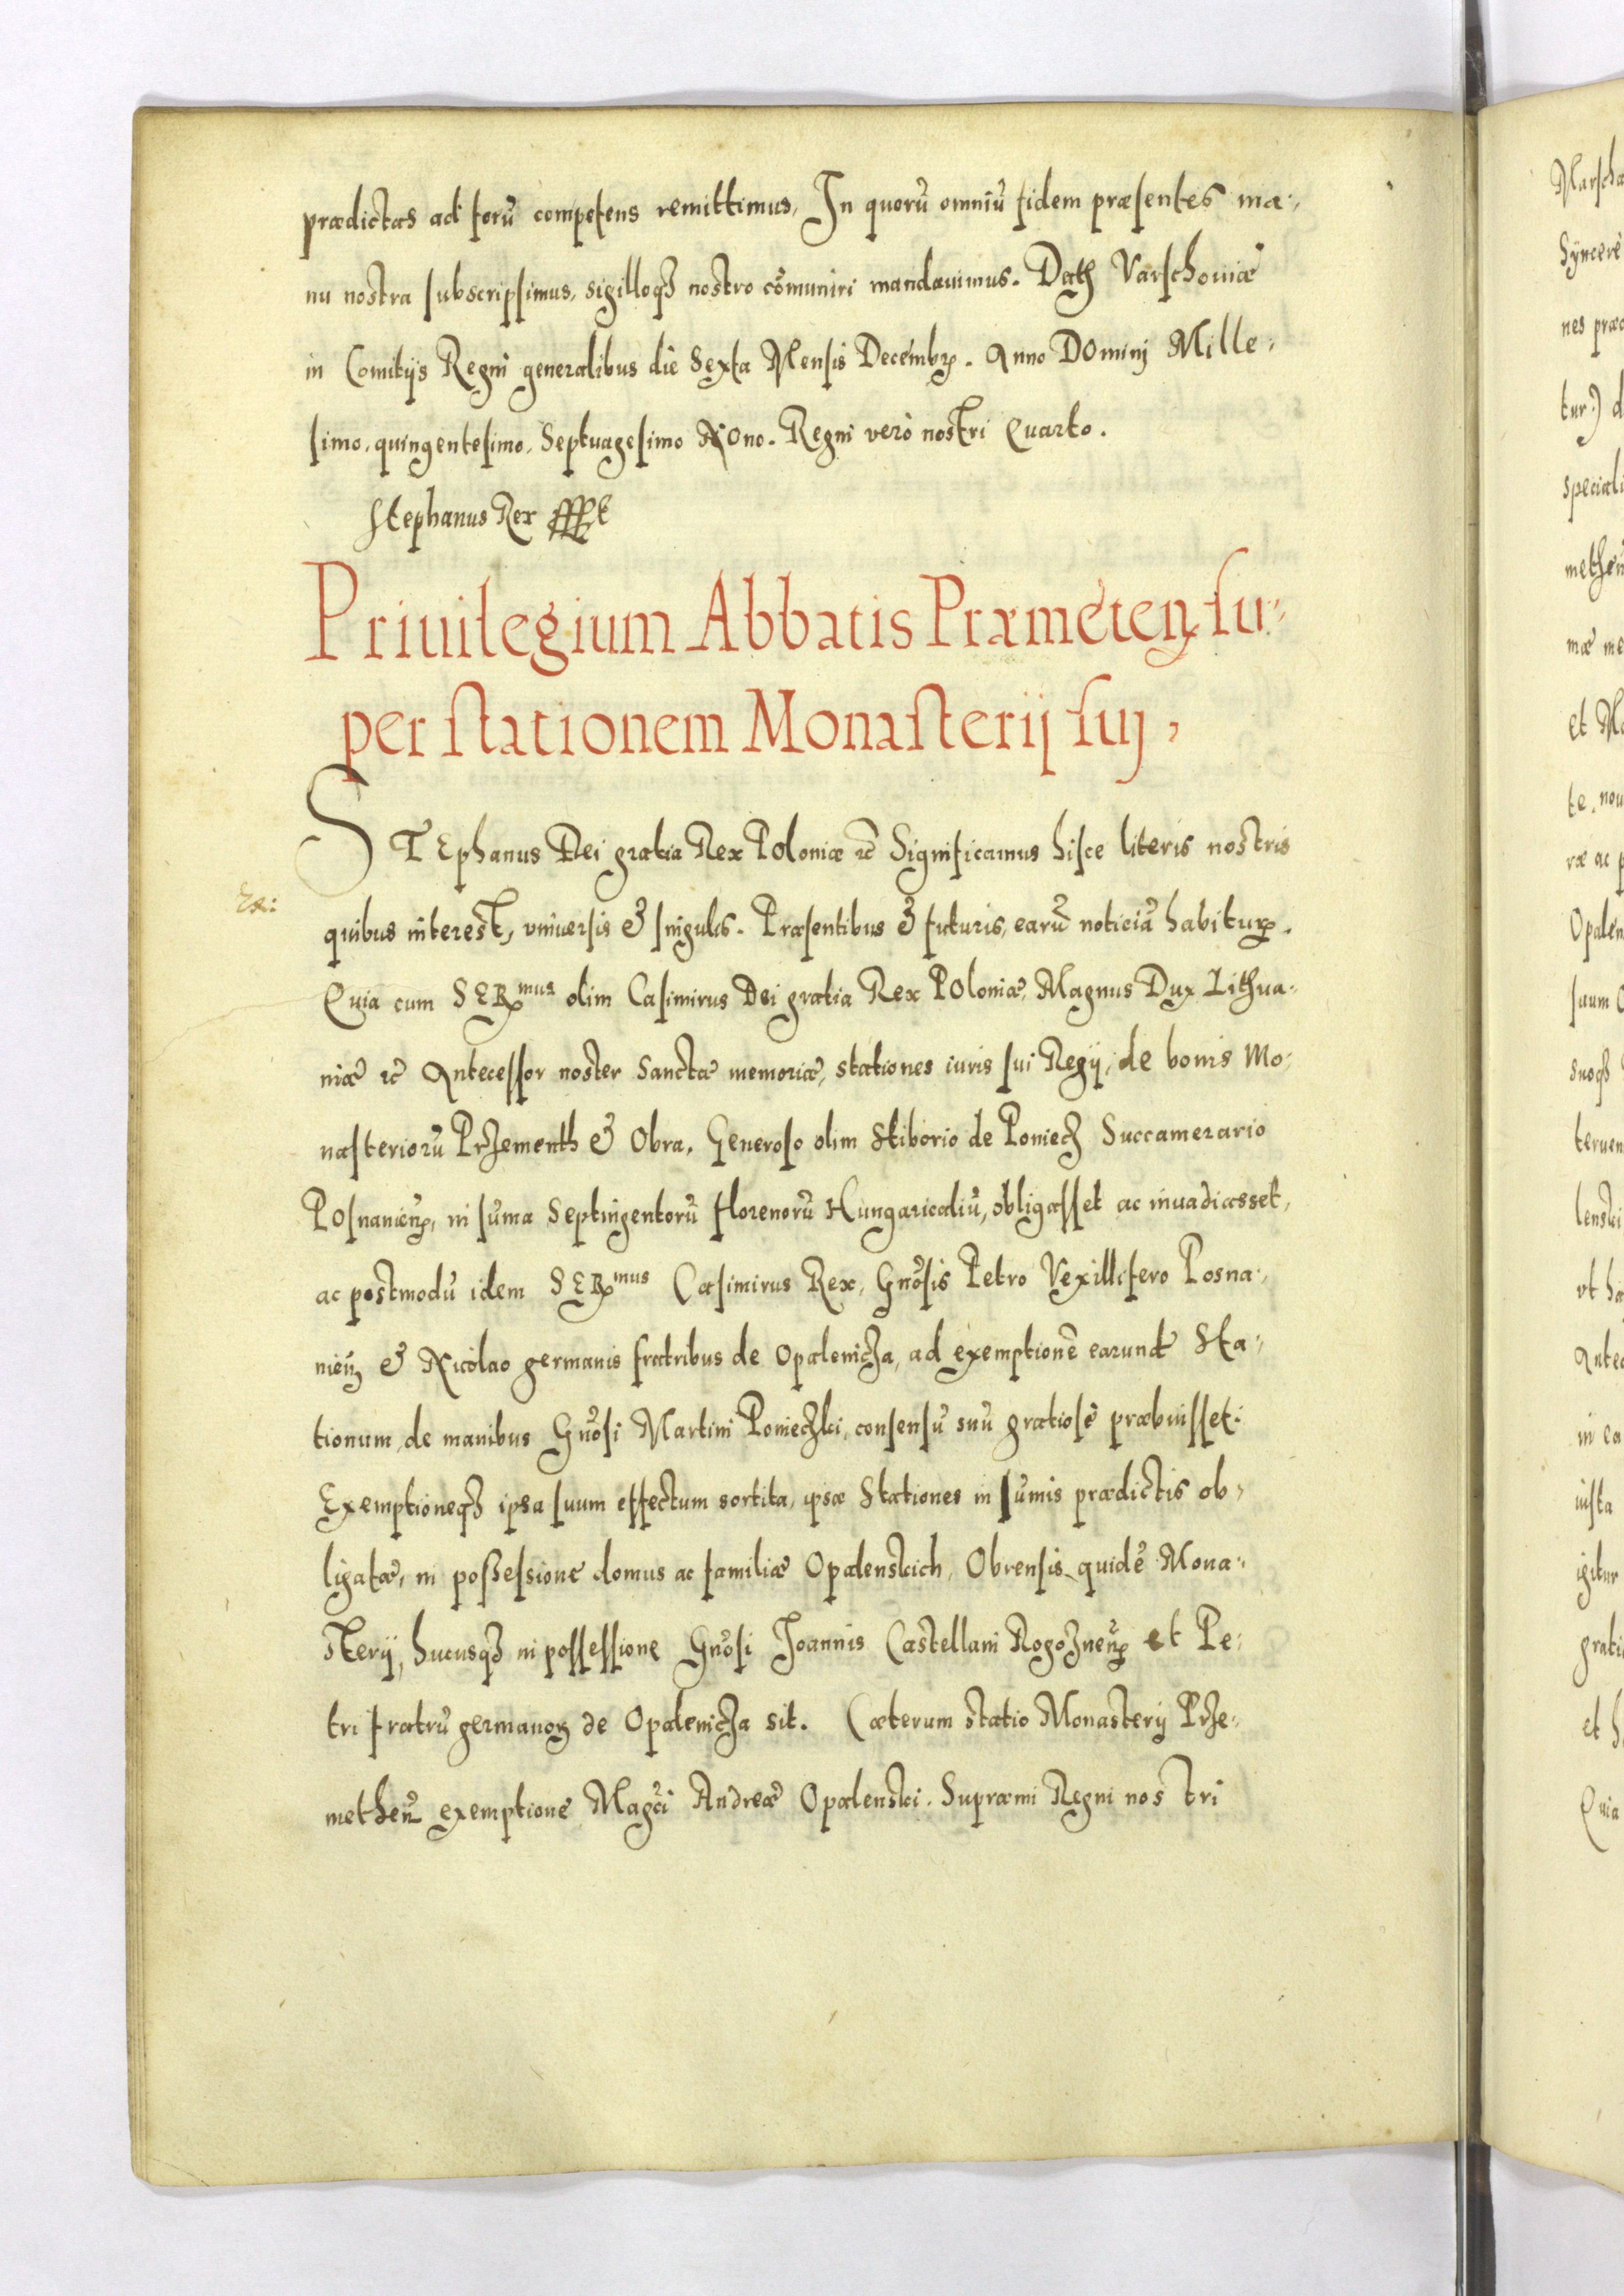 prædictas ad forũ competens remittimus, In quorũ omniũ fidem præsentes ma-,
nu nostra subscripsimus, sigilloqꝫ nostro cõmuniri mandauimus. Datꝭ Varschoniæ
in Comitijs Regni generalibus die Sexta Mensis Decembꝝ. Anno DOminj Mille-
simo, quingentesimo, Septuagesimo NOno. Regni verò nostri Quarto.
Stephanus Rex
Priuilegium Abbatis Præmeteñ su-
per stationem Monasterij suj,
STEphanus Dei gratia Rex POloniæ ꝛc̃ Significamus hisce literis nostris
quibus interest, vniuersis & singulis. Præsentibus & futuris, earũ noticiã habituꝝ.
Quia cum SERmus olim Casimirus Dei gratia Rex POloniæ, Magnus Dux Lithua-
niæ ꝛc̃ Antecessor noster Sanctæ memoriæ, stationes iuris sui Regij, de bonis Mo-
nasteriorũ Przementh & Obra, Generoso olim Stiborio de Poniecz Succamerario
POsnanieñ, in sũma Septingentorũ florenorũ Hungaricaliũ, obligasset ac inuadiasset,
ac postmodũ idem SERmus Casimirus Rex, Gñosis Petro Vexillifero Posna-,
nieñ & Nicolao germanis fratribus de Opalenicza, ad exemptionẽ earund Sta-
tionum, de manibus Gñosi Martini Ponieczki, consensũ suũ gratiosè præbuisset:
Exemptioneqꝫ ipsa suum effectum sortita, ipsæ Stationes in sũmis prædictis ob-
ligatæ, in possessione domus ac familiæ Opalenskich, Obrensis quidẽ Mona-
sterij, hucusqꝫ in possessione Gñosi Joannis Castellani Rogozneñ et Pe-
tri fratrũ germanoꝝ de Opalenicza sit. Cæterum statio Monasterij Prze-
metheñ exemptione Magci Andreæ Opalenski. Supræmi Regni nostri